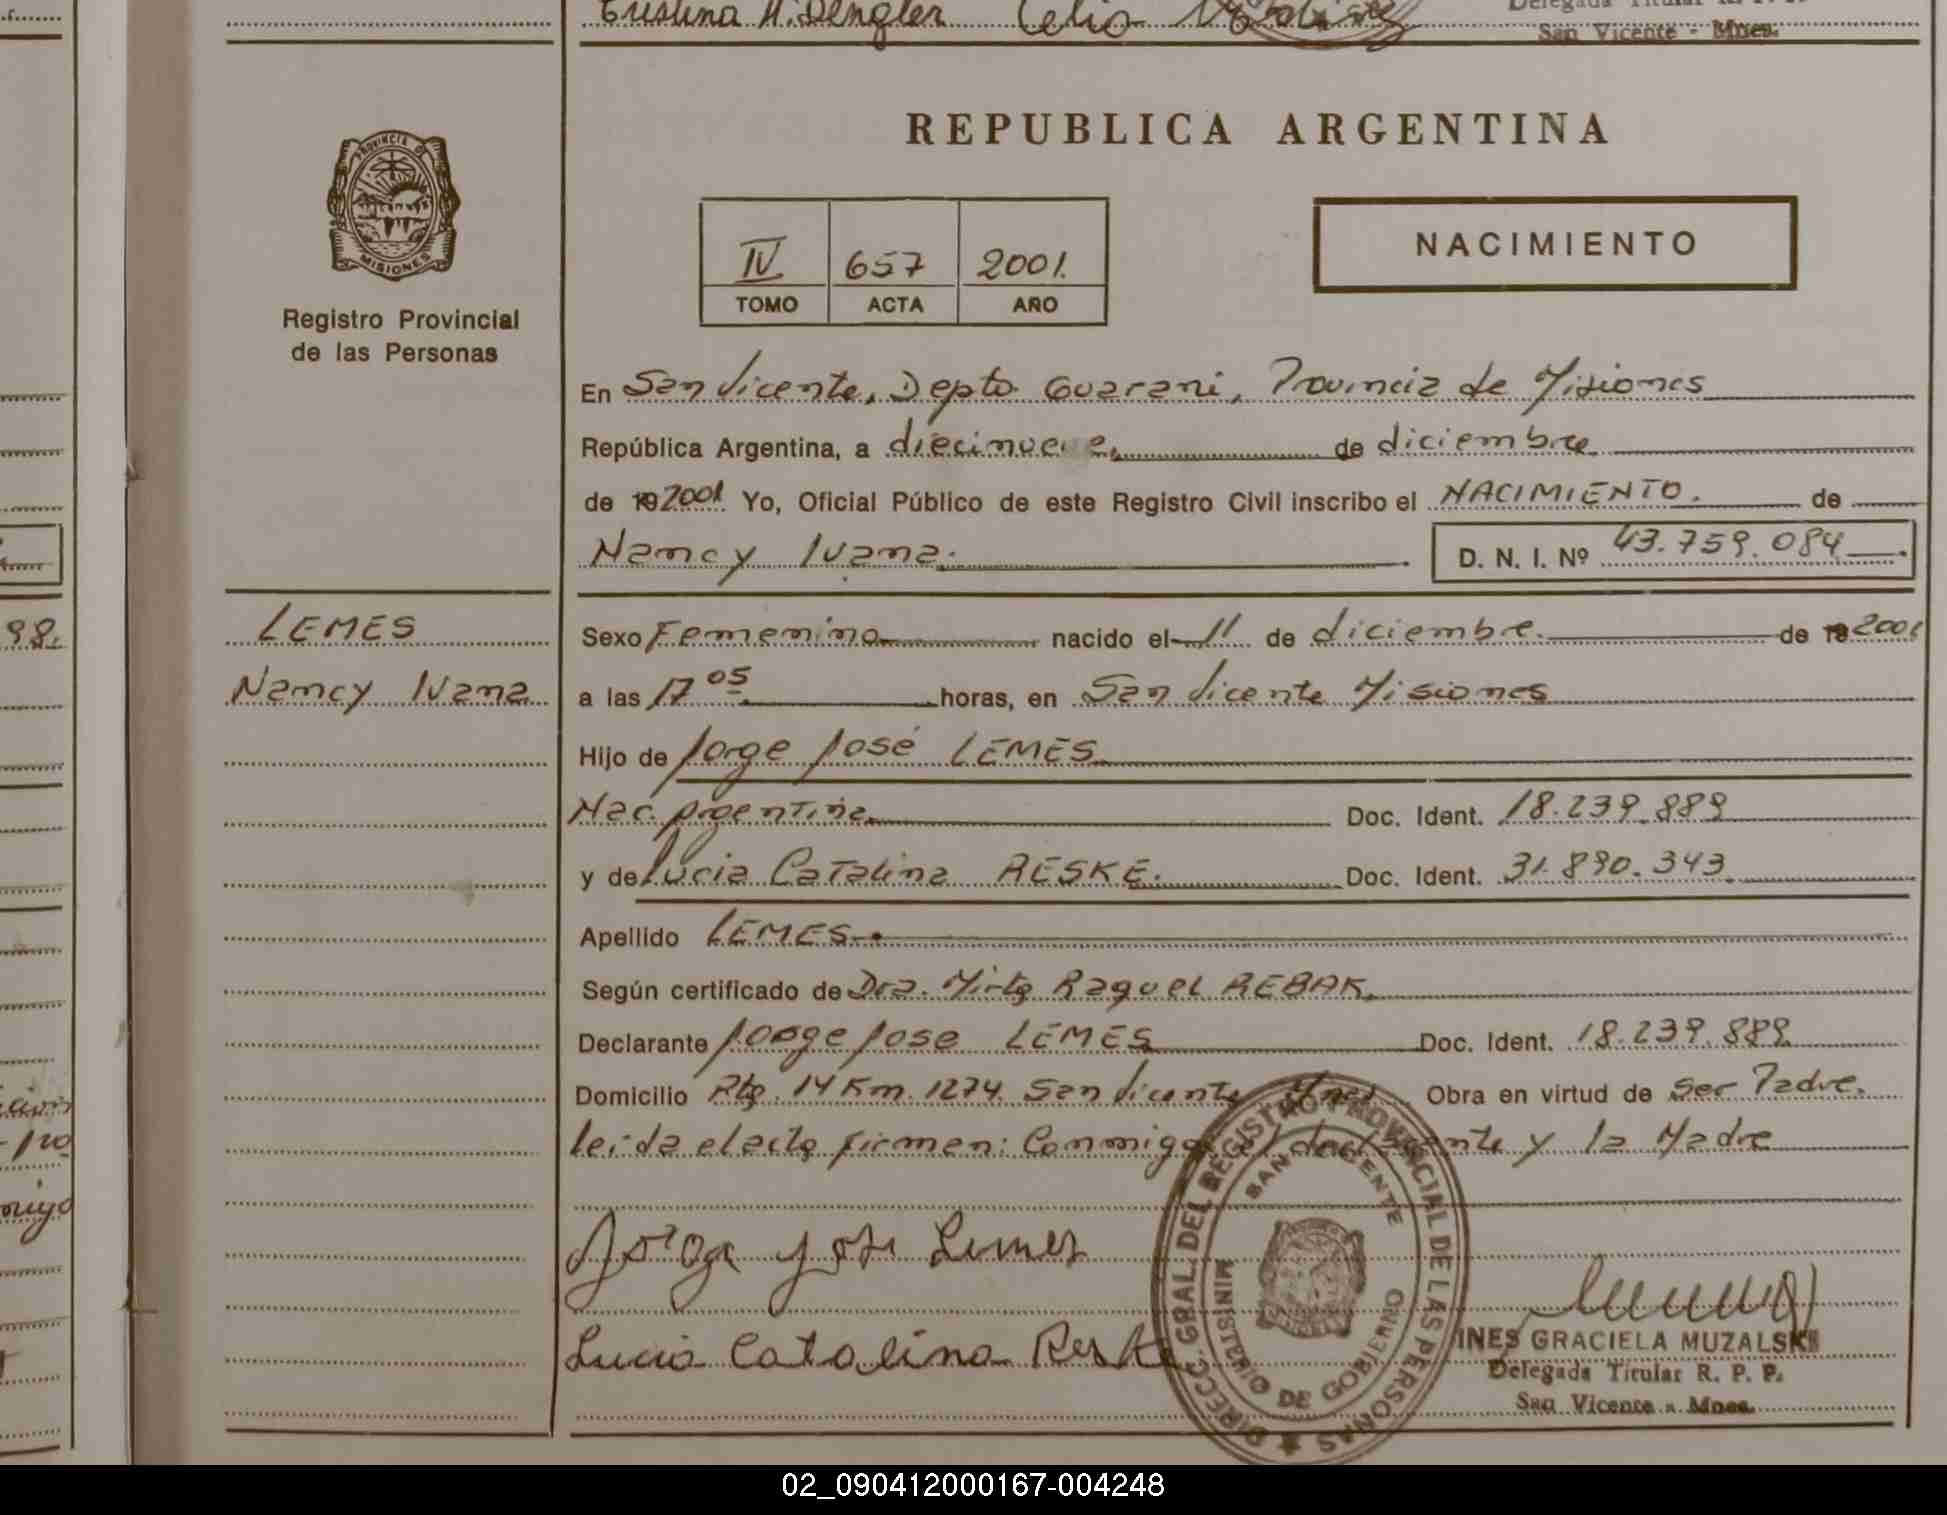 Cristina H. Dengler
San Vicente - Mnes.
REPUBLICA ARGENTINA
PROVINCIA DE
MISIONES
Registro Provincial
de las Personas
IV 657 2001.
TOMO ACTA AÑO
NACIMIENTO
En San Vicente, Depto Guarani, Provincia de Misiones
República Argentina, a diecinueve de diciembre
de 19 2001 Yo, Oficial Público de este Registro Civil inscribo el NACIMIENTO. de
Nancy Ivana. D. N. I. Nº 43.759.084
LEMES
Nancy Ivana
Sexo Femenino nacido el 11 de diciembre de 19 2001
a las 17 05 horas, en San Vicente Misiones
Hijo de Jorge José LEMES
Nac. Argentina Doc. Ident. 18.239.889
y de Lucia Catalina RESKE. Doc. Ident. 31.890.343
Apellido LEMES.
Según certificado de Dra. Mirta Raquel REBAK.
Declarante Jorge Jose LEMES Doc. Ident. 18.239.889
Domicilio Rta. 14 Km. 1274. San Vicente Mnes. Obra en virtud de ser Padre.
leida el acta firman: Conmigo el declarante y la Madre
Jorge José Lemes
Lucia Catalina Reske
DIRECC. GRAL. DEL REGISTRO PROVINCIAL DE LAS PERSONAS
SAN VICENTE
MINISTERIO DE GOBIERNO
INES GRACIELA MUZALSKI
Delegada Titular R. P. P.
San Vicente - Mnes.
98.
02_090412000167-004248